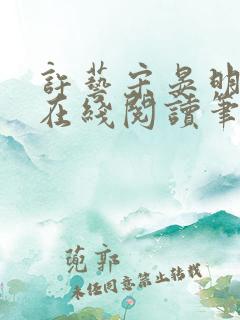 許藝宋晏明
在綫閱讀筆
蒐郭
未经同意禁止转载